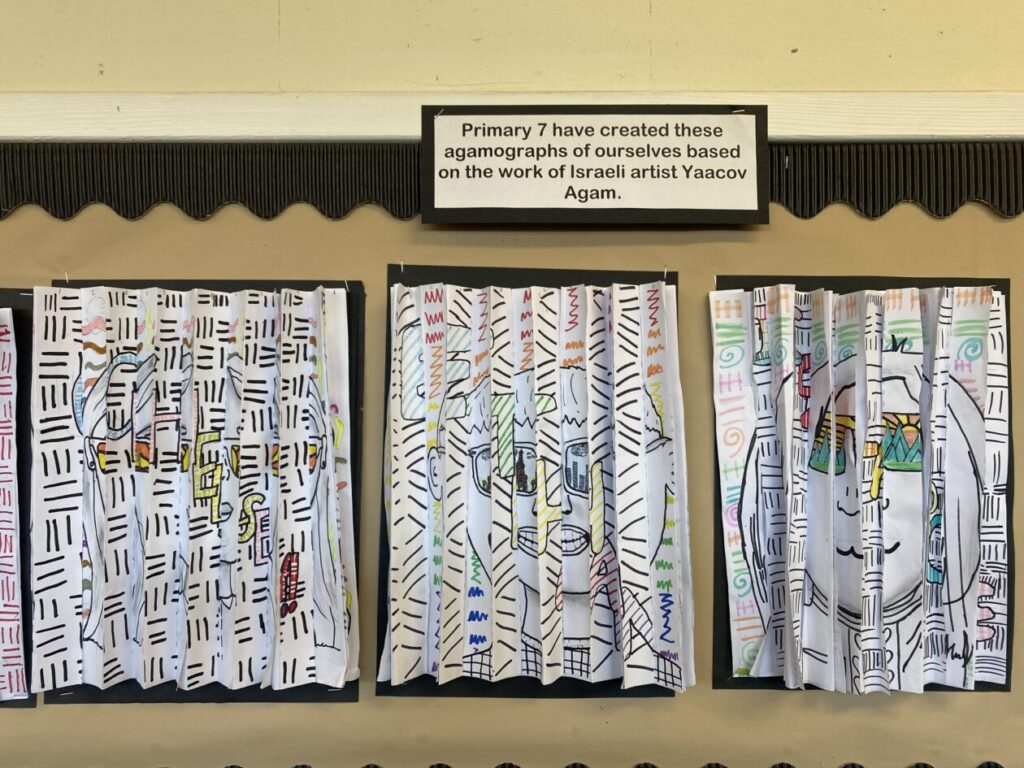 Primary 7 have created these
agamographs of ourselves based
on the work of Israeli artist Yaacov
Agam.